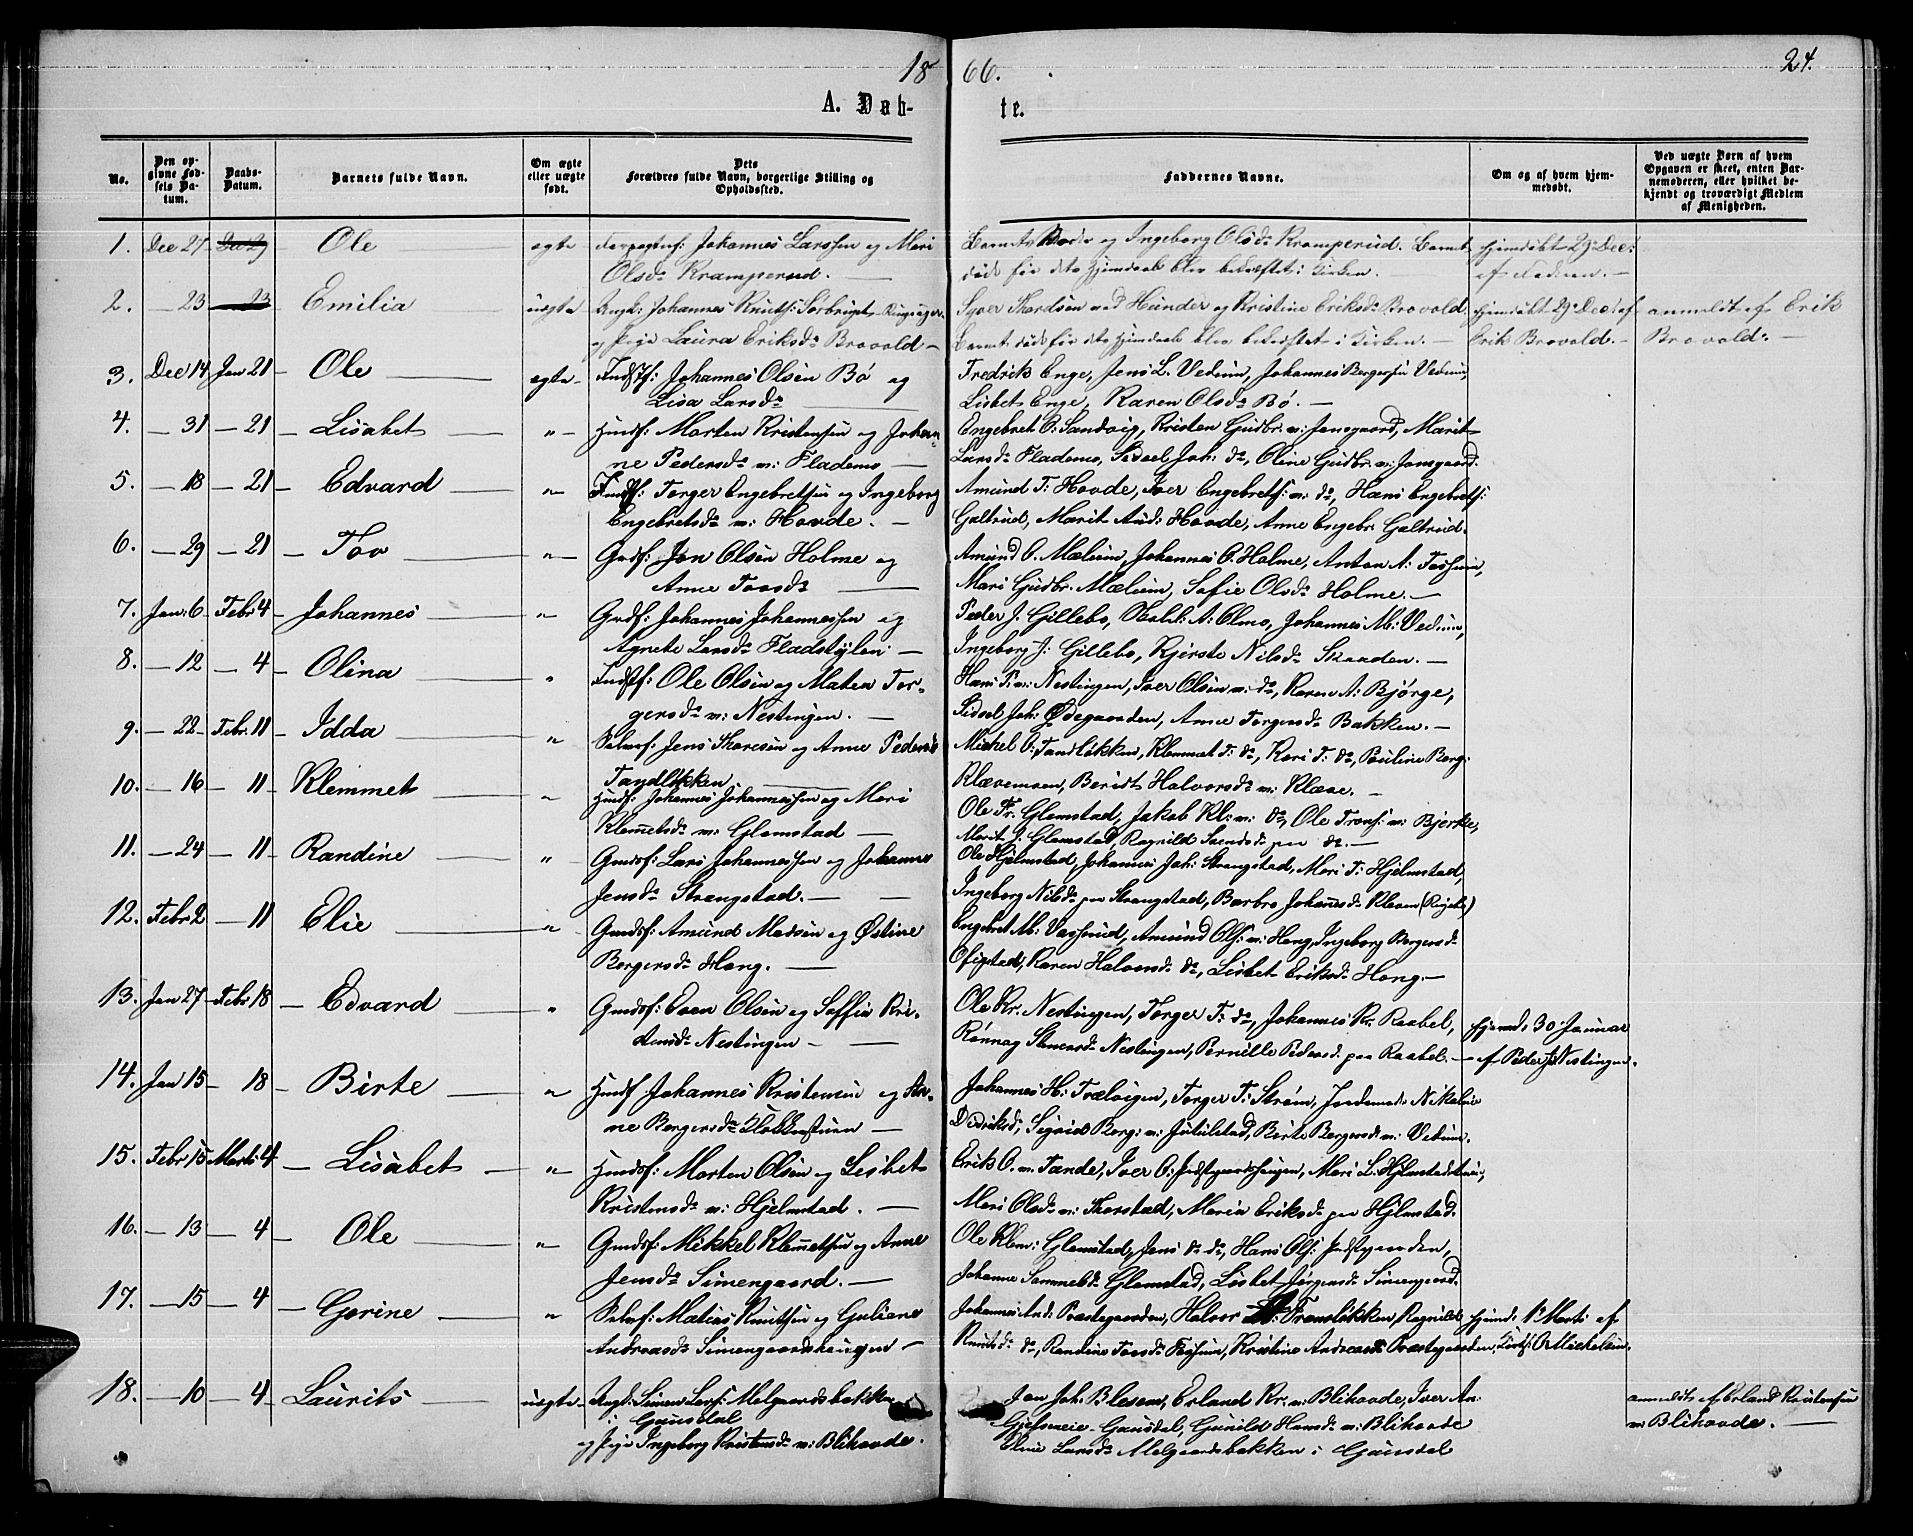 18 66. 24.
A. Døb- te.
No.
Den opgivne Fødsels Datum.
Daabs-Datum.
Barnets fulde Navn.
Om ægte eller uægte født.
Dets Forældres fulde Navn, borgerlige Stilling og Opholdssted.
Faddernes Navne.
Om og af hvem hjemmedøbt.
Ved uægte Børn af hvem Opgaven er skeet, enten Barnemoderen, eller hvilket bekjendt og troværdigt Medlem af Menigheden.
1. Dec 27 Dec 29 Ole ægte Johannes Larssen og Mari
Olsdr Kramperud.
Barnets Fader og Ingeborg Olsdr Kramperud. Barnet
døde før dets Hjemdaab blev bekræftet i Kirken.
hjemdøbt 29 Dec:
af Faderen.
2. — 23 — 23 Emilia uægte Ungk: Johannes Knuts: Sorbrygt Ringsager
og Pige Laura Eriksdr Brovold
Syver Thordsen ved Hunder og Kristine Eriksdr Brovold.
Barnet døde før dets Hjemdaab blev bekræftet i Kirken.
hjemdøbt 29 Dec: af
Erik Brovold.
anmeldt af Erik
Brovold.
3. Dec 14 Jan 21 Ole ægte Indstf: Johannes Olsen Bø og
Lisa Larsdr
Fredrik Enge, Jens L. Vedum, Johannes Bergersen Vedum,
Lisbet Enge, Karen Olsdr Bø.
4. — 31 — 21 Lisabet " Husf: Morten Kristensen og Johan-
ne Pedersdr n: Flademo
Engebret O: Sandvig, Kristen Gudbr. n: Jonsgaard, Marit
Larsdr Flademo, Sidsel Joh: do, Oline Gudbr. n: Jonsgaard.
5. — 18 — 21 Edvard " Indstf: Torger Engebretsen og Ingeborg
Engebretsdr n: Hovde.
Amund T: Hovde, Iver Engebretsf: n: do, Hans Engebretsf:
Galtrud, Marit Aud: Hovde, Anne Engebr. Galtrud.
6. — 29 — 21 Tov " Grdf: Jon Olsen Holme og
Anne Tovsdr
Amund O. Mælum, Johannes O. Holme, Anton A: Fossum,
Mari Gudbr. Mælum, Sofie Olsdr Holme.
7. Jan: 6 Febr 4 Johannes " Grdf: Johannes Johannessen og
Agnete Larsdr Fladstylen
Peder J. Gillebo, A: Olmo, Johannes M: Vedum,
Ingeborg J: Gillebo, Kjersti Nilsdr Skaaden.
8. — 12 — 4 Olina " Indstf: Ole Olsen og Maten Tor-
gersdr n: Nestingen.
Hans P. n: Nestingen, Iver Olsen n: do, Karen A: Bjørge,
Sidsel Joh: Ødegaarden, Anne Torgersdr Bakken.
9. — 22 Febr: 11 Idda " Selvef: Jens Thoresen og Anne Pedersdr
Tandløkken
Mickel O: Tandløkken, Klemmet T: do, Kari T: do, Pauline Berg:
Klævemoen, Berit Halvorsdr n: Klæve.
10. — 16 — 11 Klemmet " Husf: Johannes Johannessen og Mari
Klemetsdr n: Glomstad
Ole Tr. Glomstad, Jakob Kl: n: do, Ole Tronf: n: Bjerke,
Marit J: Glomstad, Ragnild Svendsdr paa do.
11. — 24 — 11 Randine " Grdsf: Lars Johannessen og Johanne
Jensdr Strangstad.
Ole Hjelmstad, Johannes Joh: Strangstad, Mari T: Hjelmstad,
Ingeborg Nilsdr paa Strangstad, Barbro Johansdr Kleven
12. Febr 2 — 11 Elie " Grdsf: Amund Madsen og Østine
Bergersdr Hong.
Engebret M: Vassrud, Amund Olf: n: Hong, Ingeborg Bergersdr
Ofigstad, Karen Halvorsdr do, Lisbet Eriksdr Hong.
13. Jan 27 Febr 18 Edvard " Grdsf: Even Olsen og Soffie Kri-
stensdr Nestingen
Ole Kr. Nestingen, Torger T: do, Johannes Kr. Raabel,
Rønnog Stenersdr Nestingen, Pernille Pedersd: paa Raabel.
hjemd: 30 Januar
af Peder J. Nestingen.
14. Jan 15 — 18 Birte " Husf Johannes Kristensen og An-
ne Bergersdr Klokkerstuen
Johannes H: Trælvigen, Torger T: Strøm, Jordemodr Nikoline
Didriksd., Sigrid Berg: n: Jutulstad, Birte Bergersd n: Vedum.
15. Febr 15 Marts 4 Lisabet " Husdsf: Morten Olsen og Lisbet
Kristensdr n: Hjelmstad.
Erik O. n: Tande, Iver O: Indstgaardshaugen, Mari L. Hjelmstadstuen,
Mari Olsdr n: Thorstad, Maria Eriksdr paa Hjelmstad.
16. — 13 — 4 Ole " Grdsf: Mikkel Klemetsen og Anne
Jensdr Simengaard.
Ole Klem: Glomstad, Jens do do, Hans Ols: Indstgaarden,
Johanne Sammelsdr Glomstad, Lisbet Jørgensdr Simengaard.
17. — 15 — 4 Gorine " Selvef: Matias Knutsen og Guliane
Andreasdr Simengaardshaugen
Johannes And: Præstegaarden, Halvor Fransløkken, Ragnild
Knutsdr do, Randine Tovsdr Fossum, Kristine Andreasdr Præstegaarden,
hjemd: 1 Marts af
O Mickelsen.
18. — 10 — 4 Laurits uægte Ungk: Simen Lars: Melgaardsbakken
i Gausdal
og Pige Ingeborg Kristensdr n: Blihovde.
Jon Joh: Blesom, Erland Kr. n: Blihovde, Iver An.
Gausdal, Gunild Hansdr n: Blihovde
Eline Larsdr Melgaardsbakken i Gausdal
anmeldt af Erland Kristensen
n: Blihovde.